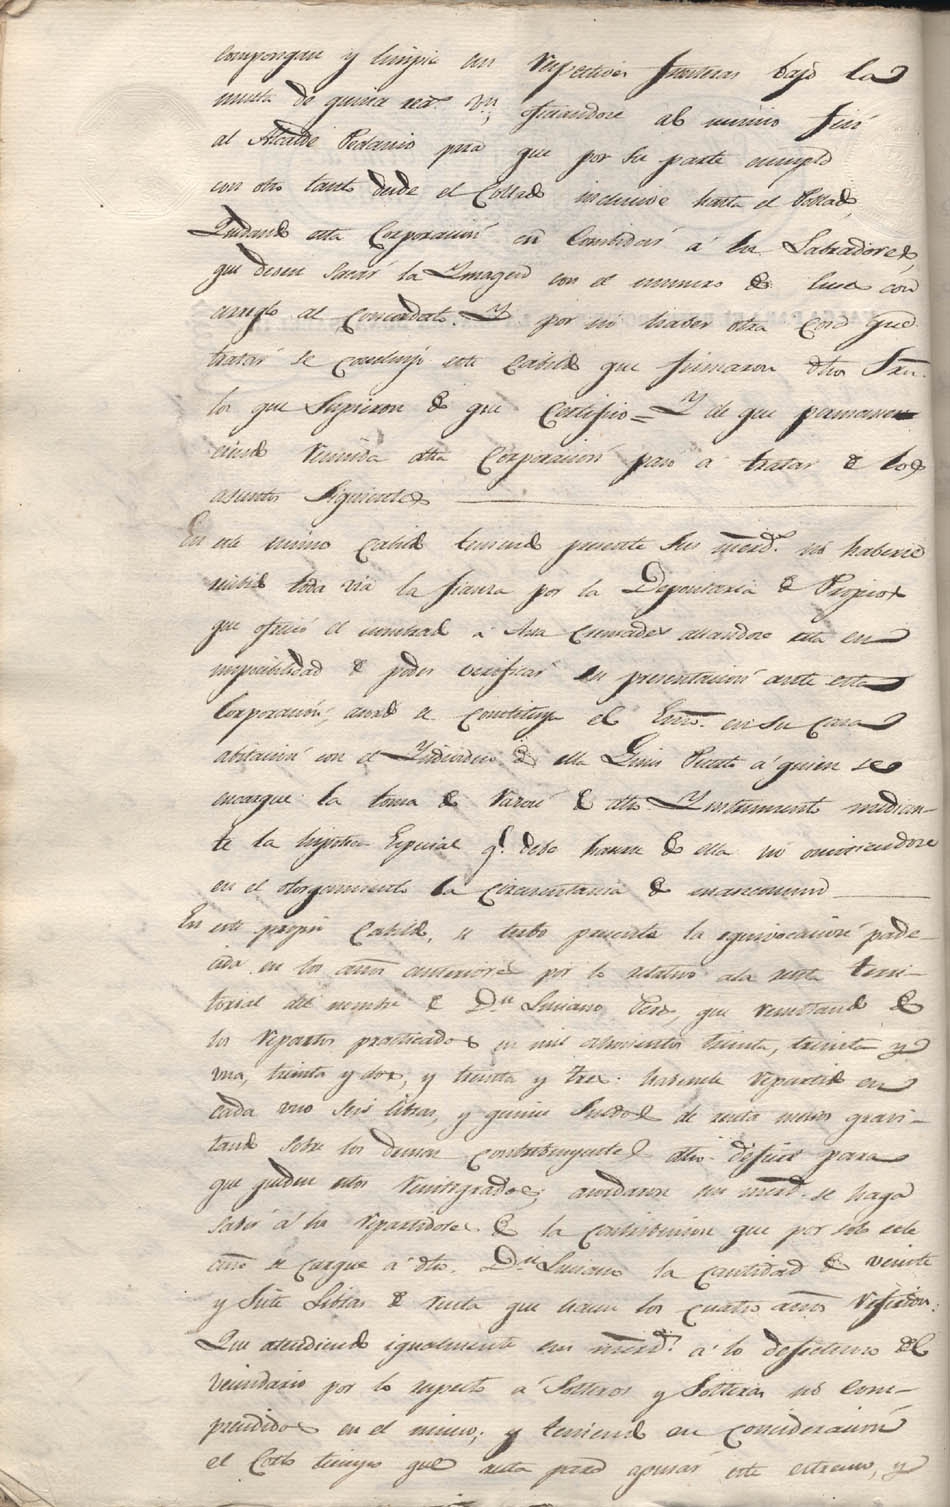 compongan y limpie sus respectivas fronteras bajo la
multa de quince rea.s v.n, oficiandose al mismo fin
al Alcalde Pedaneo para que por su parte cumpla
con otro tanto desde el Collado inclusive hasta el Poblado,
Quedando esta Corporacion en combidar á los Labradores,
que deven sacar la Ymagen con el numero de luces con
arreglo al Concordato. Y por no haber otra cosa que
tratar se concluyó este Cabildo que firmaron dhos Sres.
los que supieron de que Certifico = Y de que permane-
ciendo reunida esta Corporacion paso á tratar de los
asuntos siguientes
En este mismo Cabildo teniendo presente sus merd.s no haberse
recibido toda via la fianza por la Depositaria de Propios
que ofreció el nombrado á Ana allandose esta en
imposibilidad de poder verificar su presentacion ante esta
Corporacion, acordó se constituya el Esno. en su casa
abitacion con el Yndividuo de ella Gines á quien se
encargue la toma de razon de dho Ynstrumento median-
te la hipoteca Especial q.e debe hacerse de ella no omitiendose
en el otorgamiento la circunstancia de mancomun
En este propio Cabildo, se tubo presente la equivocacion pade-
cida en los años anteriores por lo relativo a la renta terri-
torial del nombre de D.n Luciano, que resultando de
los repartos practicados en mil ochocientos treinta, treinta y
uno, treinta y dos, y treinta y tres: haberle repartido en
cada uno seis libras, y quince sueldos de renta menos gravi-
tando sobre los demas contribuyentes dho deficit para
que queden estos reintegrados; acordaron sus merd.s se haga
saber á los repartidores de la contribucion que por solo este
año se cargue á dho. D.n Luciano la cantidad de veinte
y siete Libras de renta que hacen los cuatro años referidos:
Que atendiendo igualmente sus merd.s á lo defectuoso del
vecindario por lo respecto á Solteros y Solteras no com-
prendidos en el mismo; y teniendo en consideracion
el corto tiempo que resta para apurar este estremo, y